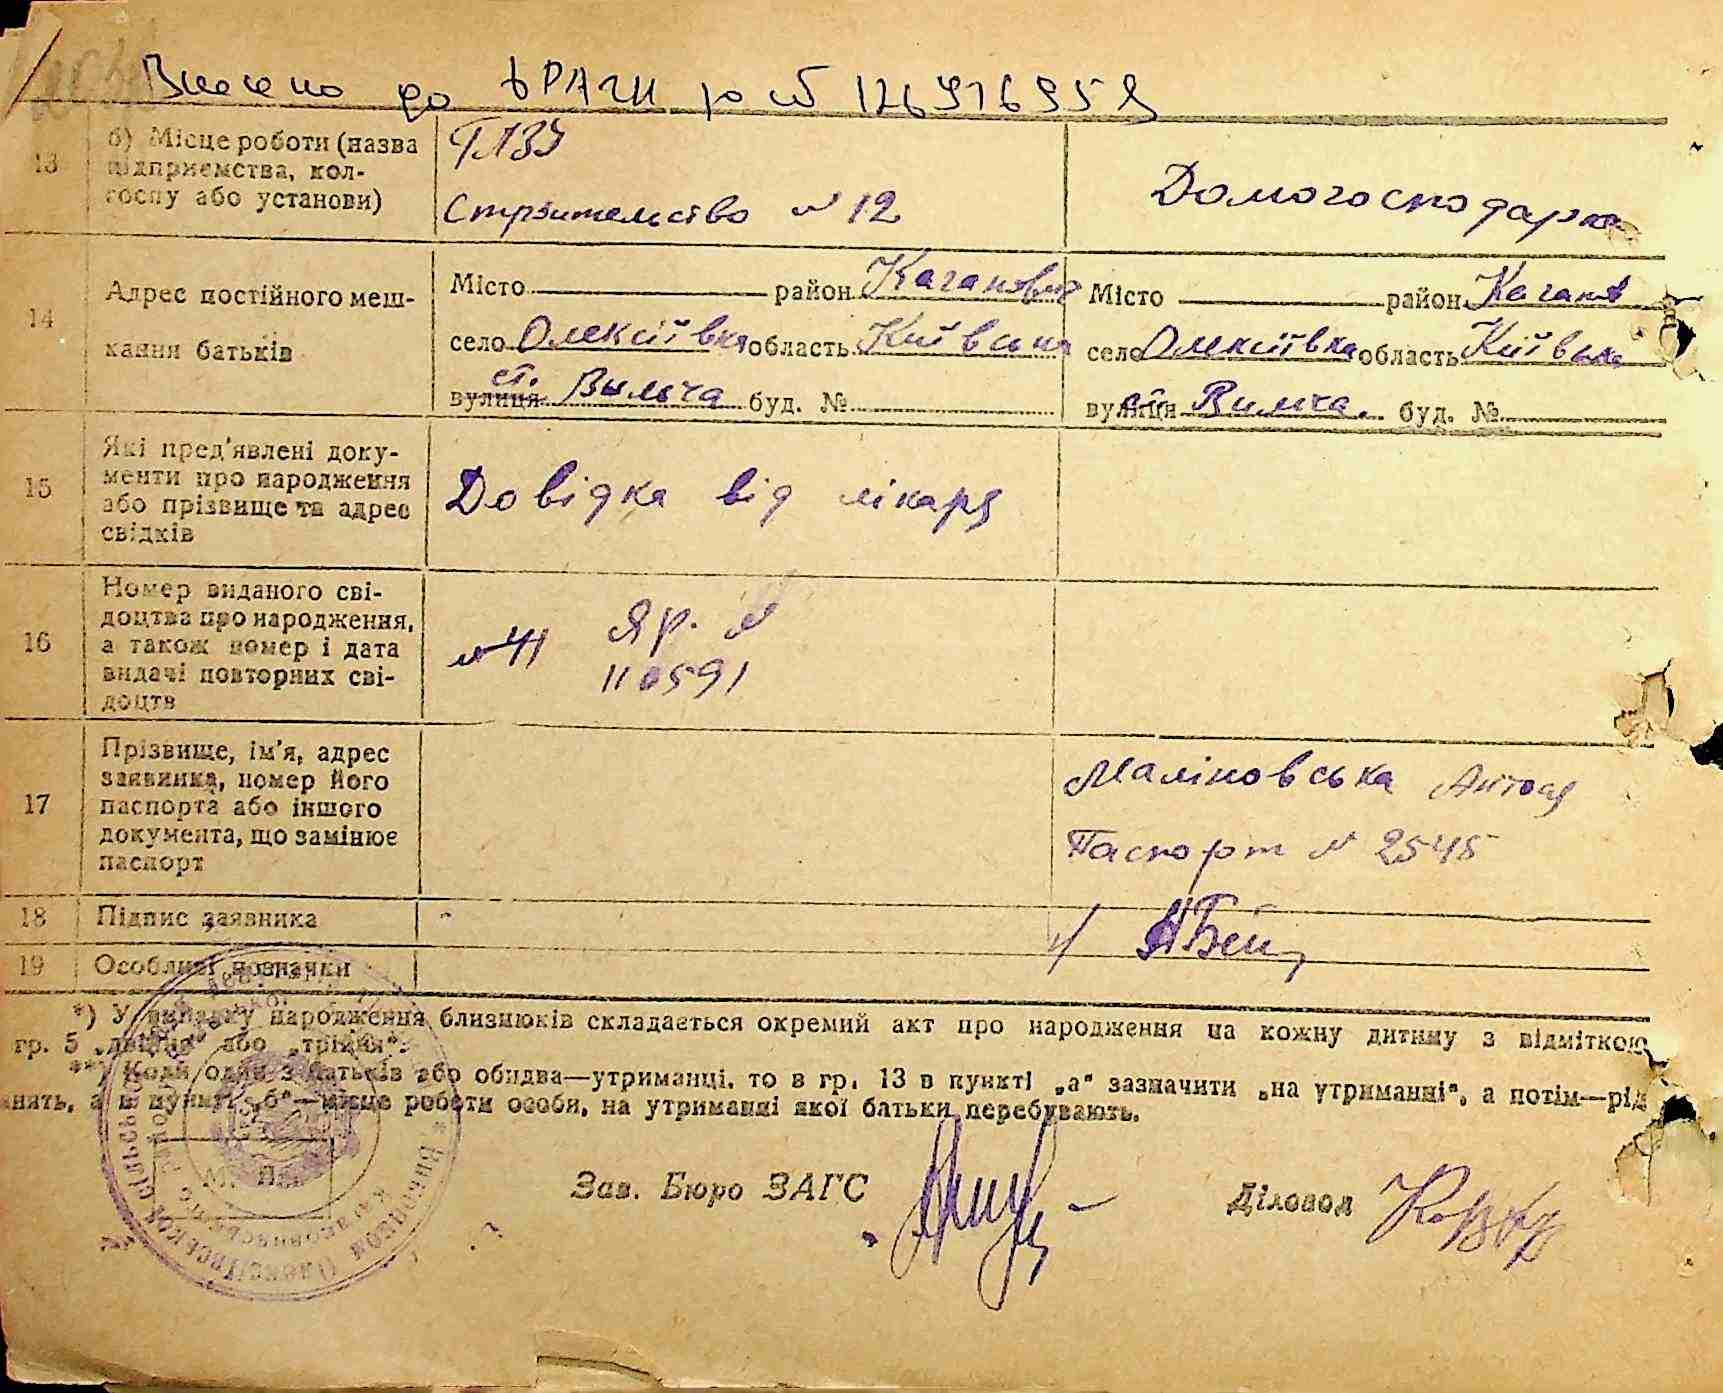 Внесено до ДРАЦС
13
б) Місце роботи (назва підприємства, колгоспу або установи)
Стрзительство N 12
Домогосподарка
14
Адрес постійного мешкання батьків
Місто район Каганович
село Олексіївка область Київська
вулиця ст. Вильча буд. №
Місто район Каганов
село Олексіївка область Київська
вулиця ст. Вильча. буд. №
15
Які пред'явлені документи про народження або прізвище та адрес свідків
Довідка від лікаря
16
Номер виданого свідоцтва про народження, а також номер і дата видачі повторних свідоцтв
N 41
110591
17
Прізвище, ім'я, адрес заявника, номер його паспорта або іншого документа, що замінює паспорт
Маліновська
Паспорт N 2545
18
Підпис заявника
19
Особливі позначки
*) У випадку народження близнюків складається окремий акт про народження на кожну дитину з відміткою
гр. 5 „двійня" або „трійня".
**) Коли один з батьків або обидва—утриманці, то в гр. 13 в пункті „а" зазначити „на утриманні", а потім—рід
занять, а в пункті „б"—місце роботи особи, на утриманні якої батьки перебувають.
М. П.
Зав. Бюро ЗАГС
Діловод